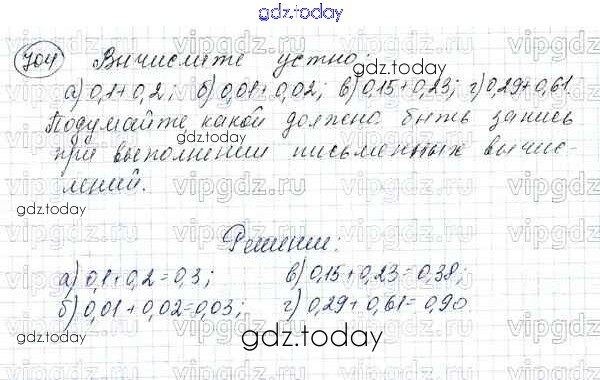 gdz.today
704 Вычислите устно:
gdz.today
а) 0,1+0,2; б) 0,01+0,02; в) 0,15+0,23; г) 0,29+0,61.
Подумайте какой должна быть запись
при выполнении письменных вычис-
лений.
gdz.today
Решение:
а) 0,1+0,2=0,3; в) 0,15+0,23=0,38;
б) 0,01+0,02=0,03; г) 0,29+0,61=0,90.
gdz.today
vipgdz.ru